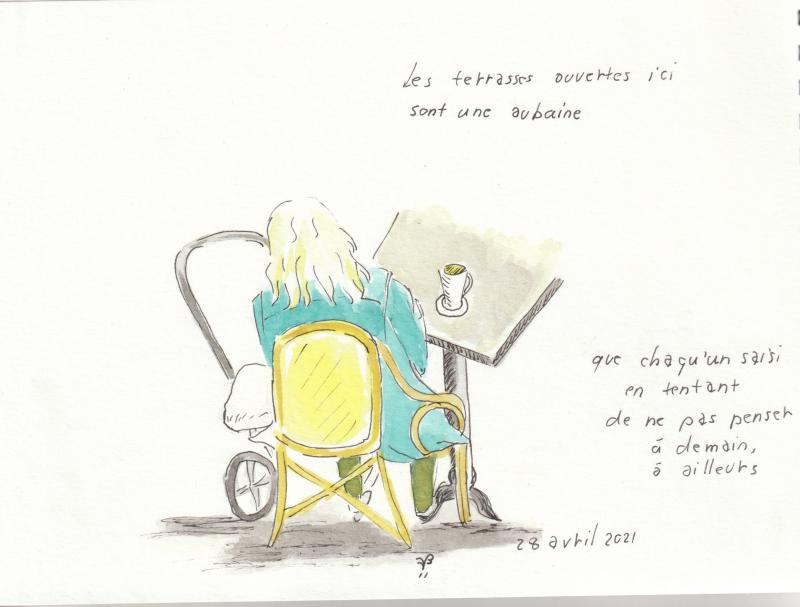 Les terrasses ouvertes ici
sont une aubaine
que chaqu'un saisi
en tentant
de ne pas penser
à demain,
à ailleurs
28 avril 2021